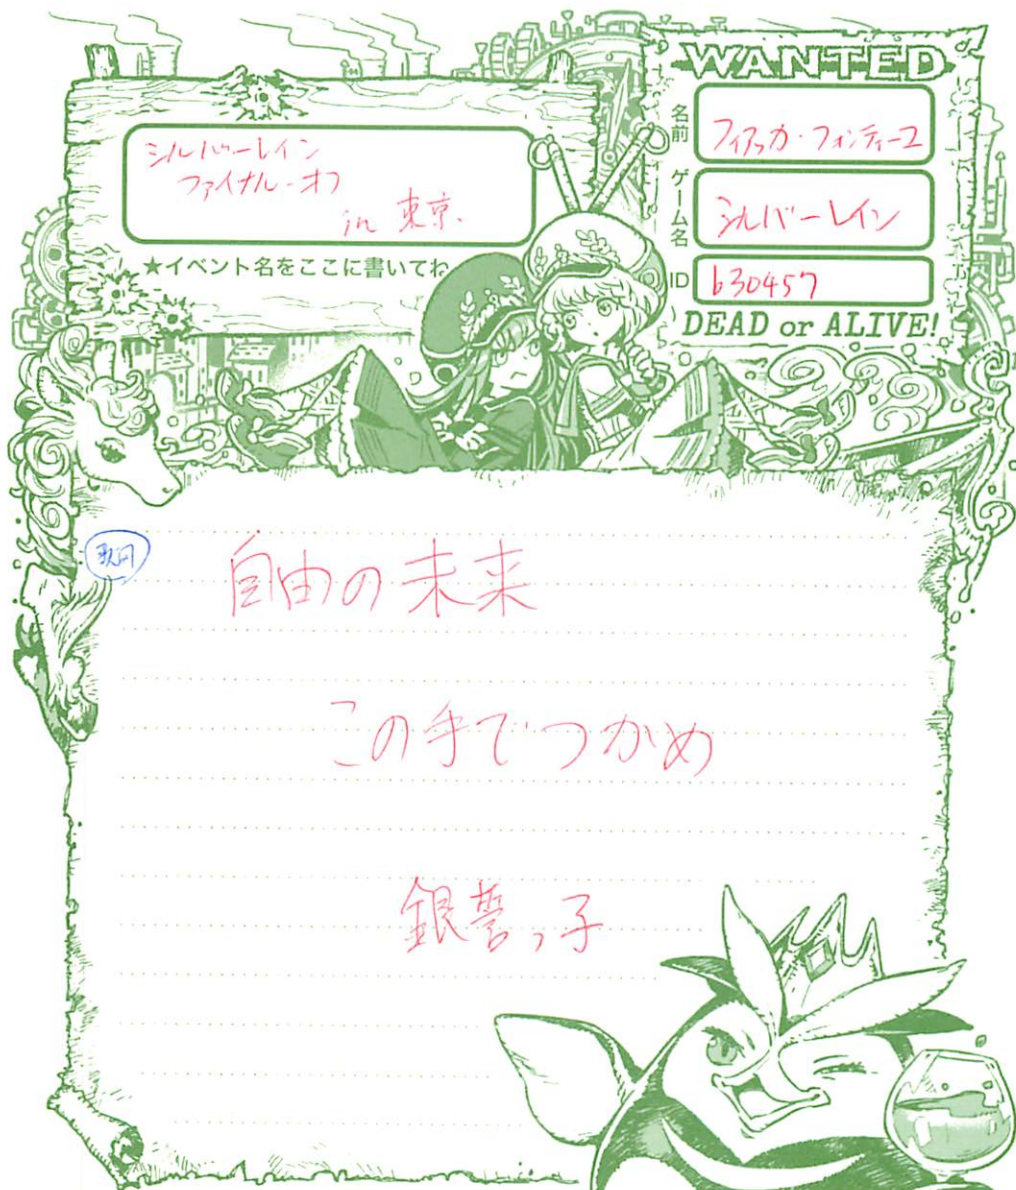 シルバーレイン
ファイナル・オフ
in 東京.
★イベント名をここに書いてね
WANTED
名前
フィアッカ・フォンティーユ
ゲーム名
シルバーレイン
ID
b30457
DEAD or ALIVE!
歌詞
自由の未来
この手でつかめ
銀誓っ子